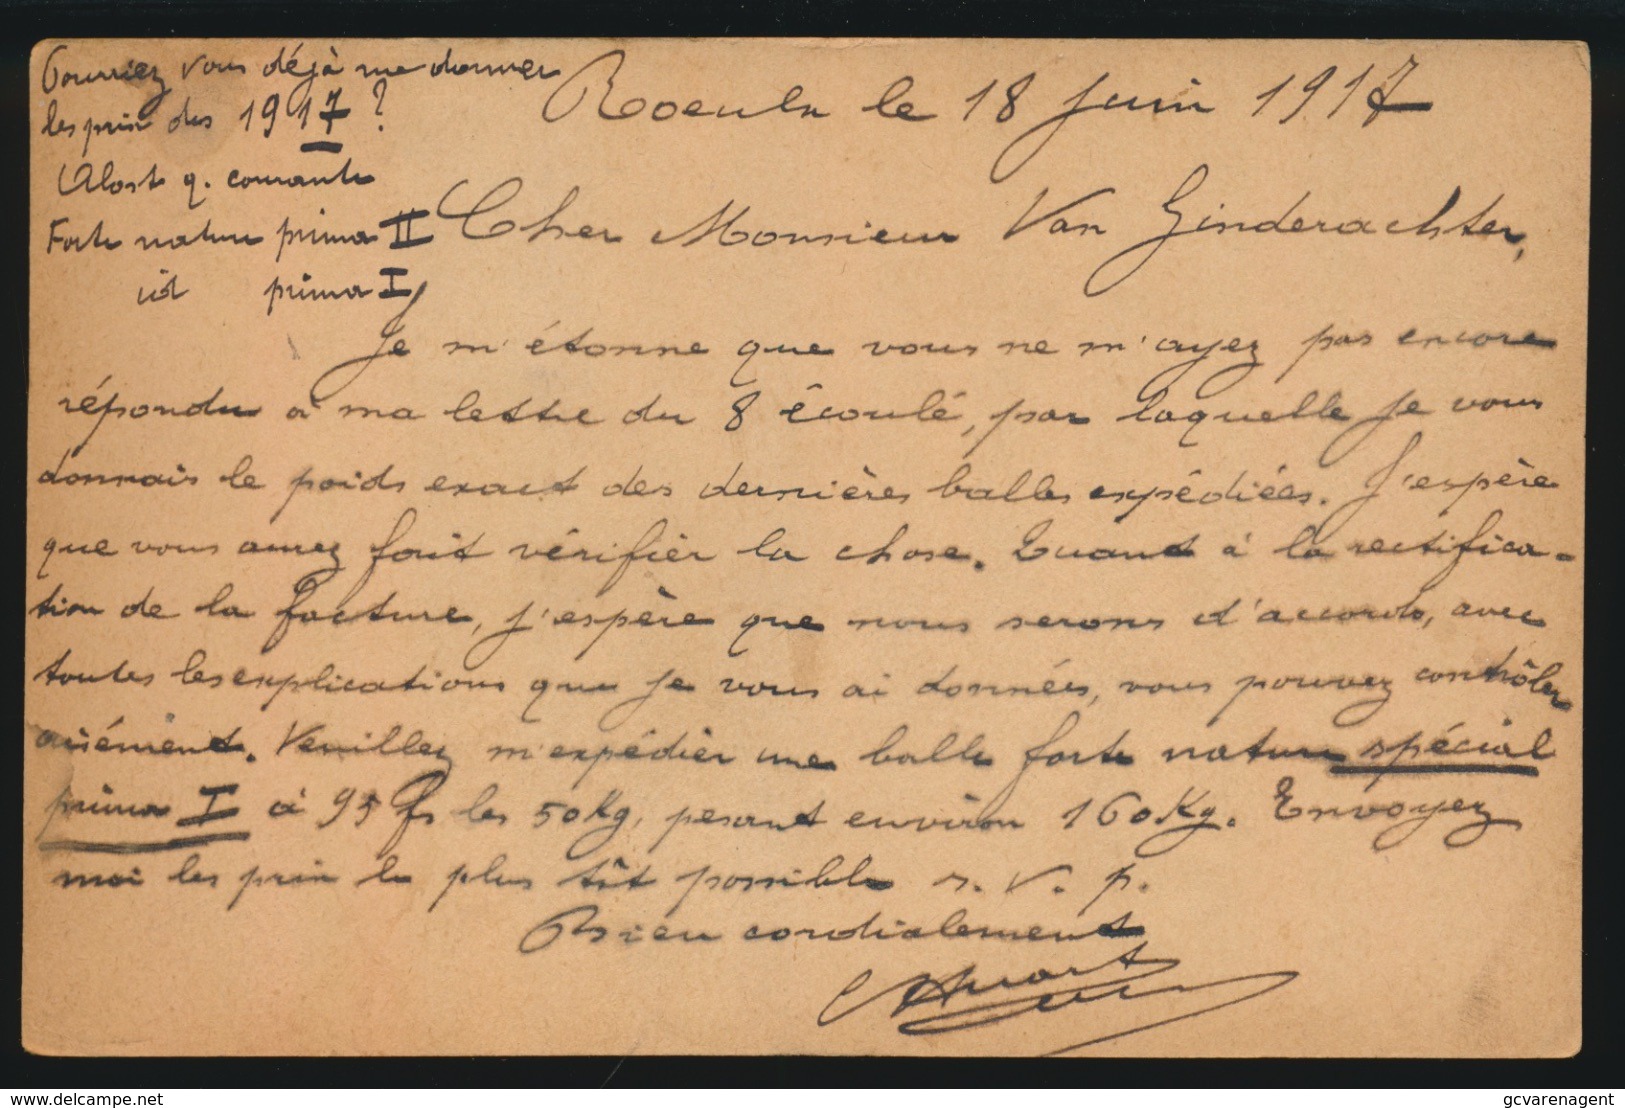 Pourriez vous déjà me donner
les prix des 1917 ?
Alost q. courante
Forte nature prima II
id prima I
Roeulx le 18 juin 1917
Cher Monsieur Van Ginderachter,
Je m'étonne que vous ne m'ayez pas encore
répondu à ma lettre du 8 écoulé, par laquelle je vous
donnais le poids exact des dernières balles expédiées. J'espère
que vous aurez fait vérifier la chose. Quant à la rectifica-
tion de la facture, j'espère que nous serons d'accords, avec
toutes les explications que je vous ai données, vous pouvez contrôler
aisément. Veuillez m'expédier une balle forte nature spécial
prima I à 95 fs les 50 Kg, pesant environ 160 Kg. Envoyez
moi les prix le plus tôt possible s. v. p.
Bien cordialement
www.delcampe.net
gcvarenagent